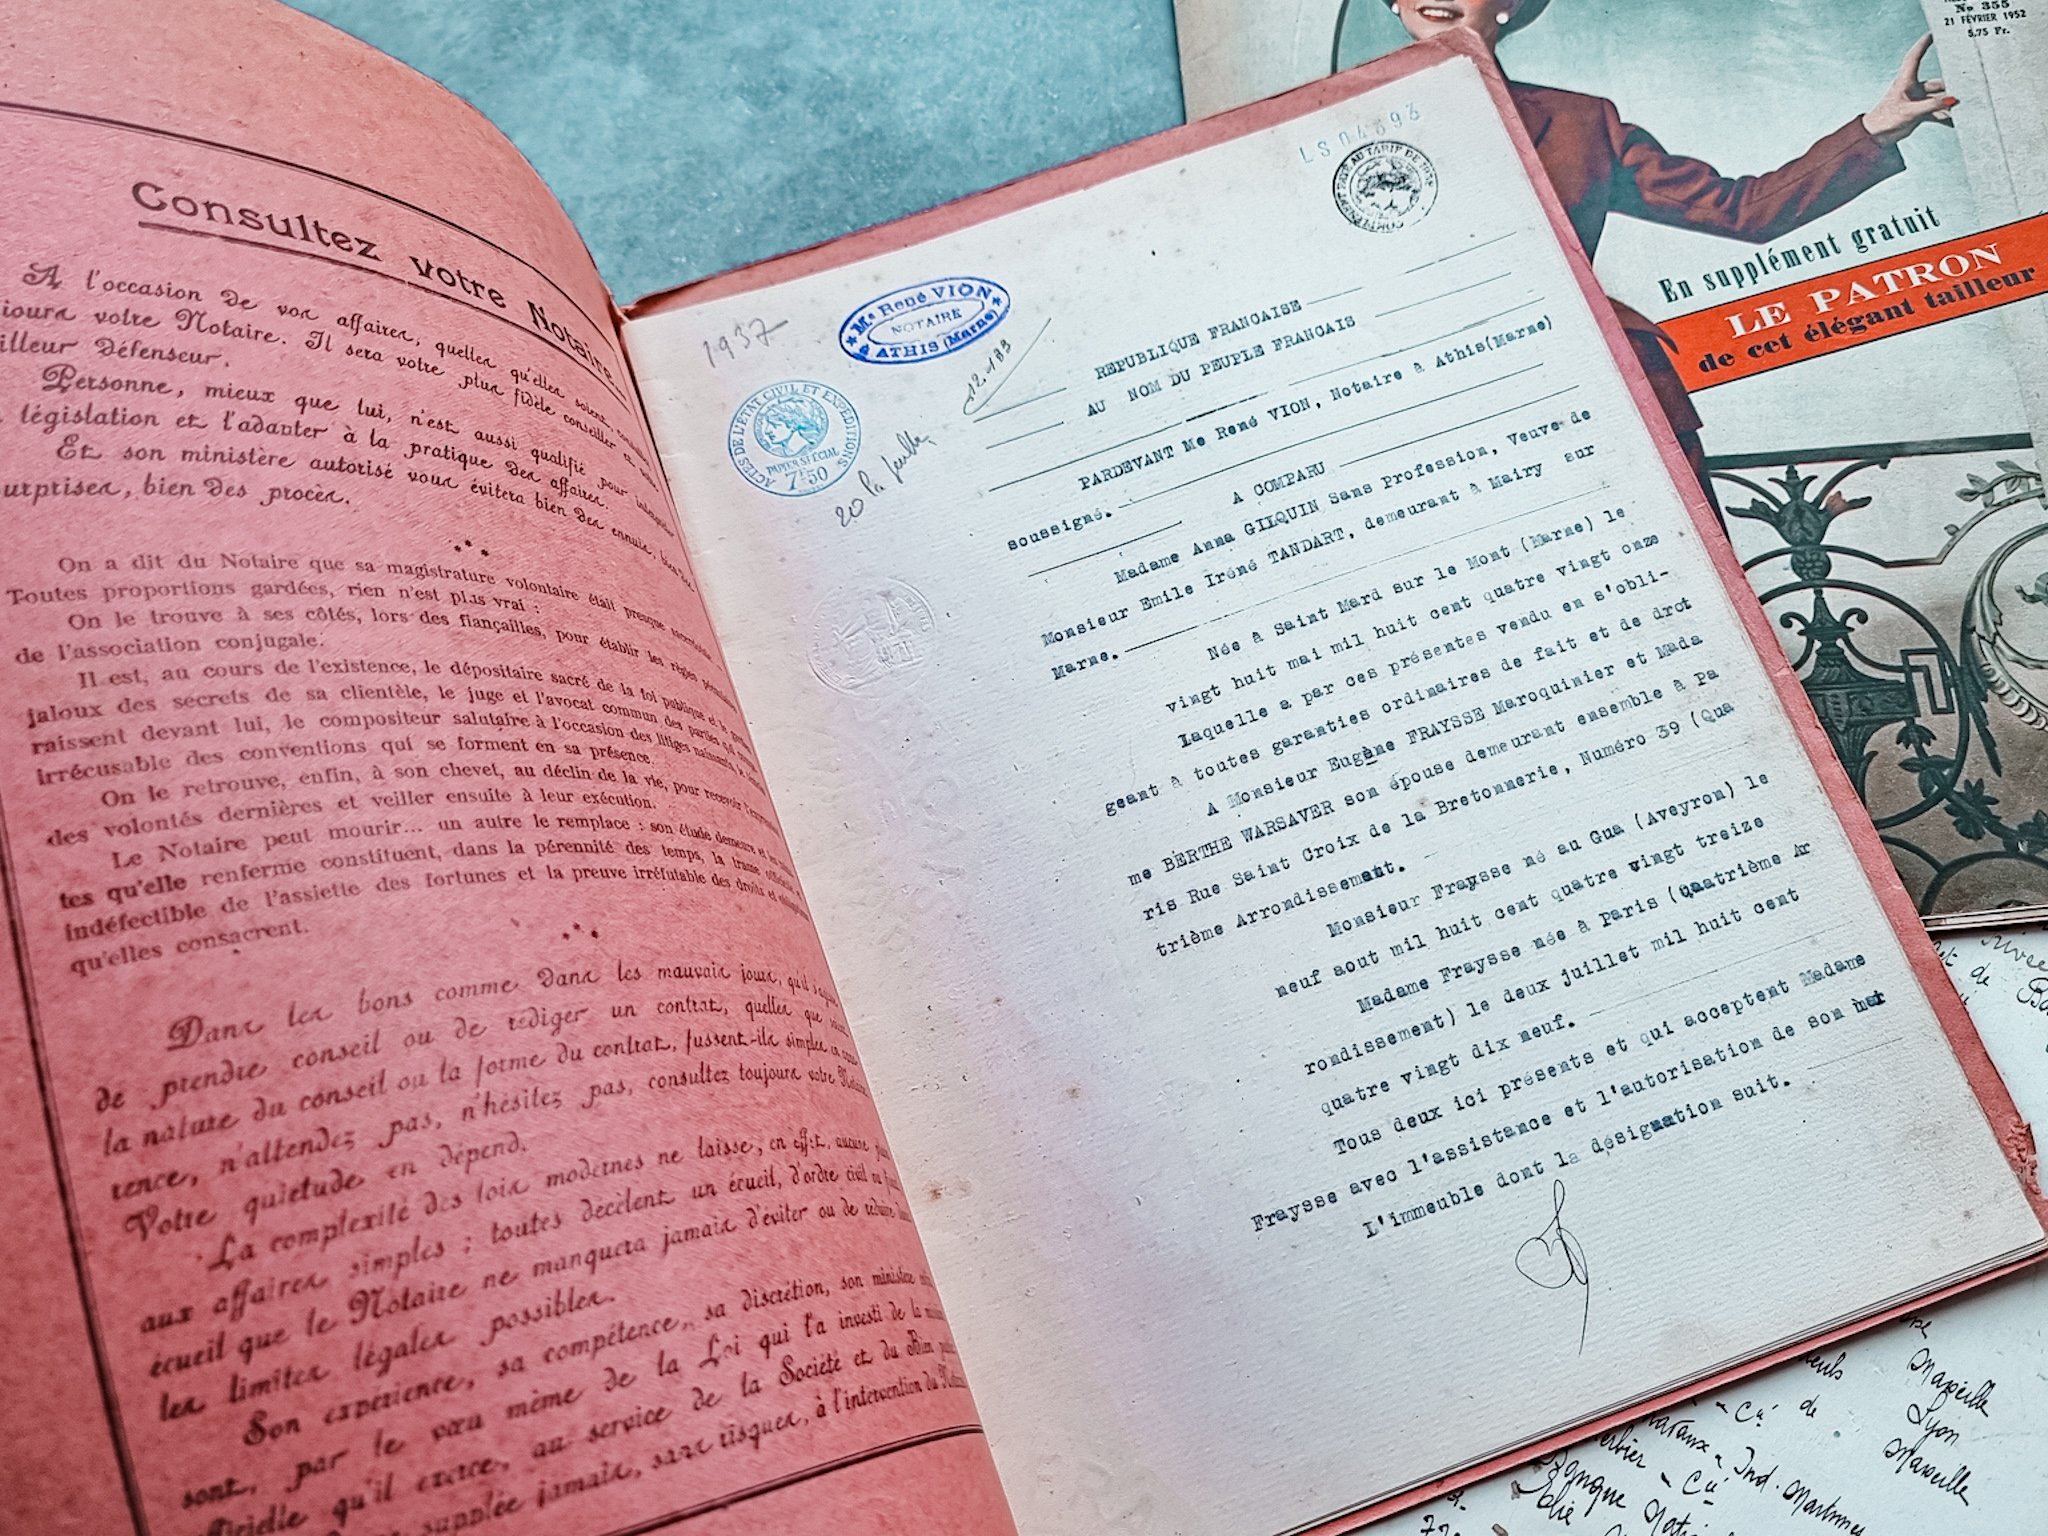 Consultez votre Notaire
A l'occasion de vos affaires, quelles qu'elles soient,
votre Notaire. Il sera votre plus fidèle conseiller et
Défenseur.
Personne, mieux que lui, n'est aussi qualifié pour
législation et l'adapter à la pratique des affaires.
Et son ministère autorisé vous évitera bien des ennuis, bien des
surprises, bien des procès.
***
On a dit du Notaire que sa magistrature volontaire était presque
Toutes proportions gardées, rien n'est plus vrai :
On le trouve à ses côtés, lors des fiançailles, pour établir les règles
de l'association conjugale.
Il est, au cours de l'existence, le dépositaire sacré de la foi publique et le
jaloux des secrets de sa clientèle, le juge et l'avocat commun des parties qui
raissent devant lui, le compositeur salutaire à l'occasion des litiges naissants, le
irrécusable des conventions qui se forment en sa présence.
On le retrouve, enfin, à son chevet, au déclin de la vie, pour recevoir
des volontés dernières et veiller ensuite à leur exécution.
Le Notaire peut mourir... un autre le remplace : son étude demeure et les
tes qu'elle renferme constituent, dans la pérennité des temps, la trame
indéfectible de l'assiette des fortunes et la preuve irréfutable des droits et
qu'elles consacrent.
***
Dans les bons comme dans les mauvais jours, qu'il
de prendre conseil ou de rédiger un contrat, quelles que
la nature du conseil ou la forme du contrat, fussent-ils simples en
rence, n'attendez pas, n'hésitez pas, consultez toujours votre Notaire
Votre quiétude en dépend.
La complexité des lois modernes ne laisse, en effet, aucune
aux affaires simples ; toutes décèlent un écueil, d'ordre civil ou
écueil que le Notaire ne manquera jamais d'éviter ou de réduire
les limites légales possibles.
Son expérience, sa compétence, sa discrétion, son ministère
sont, par le vœu même de la Loi qui l'a investi de la
qu'il exerce, au service de la Société et du Bien
supplée jamais, sans risques, à l'intervention du
LS04893
1937
Me René VION
NOTAIRE
à ATHIS (Marne)
12.183
ACTES DE L'ETAT CIVIL ET EXPEDITIONS
PAPIER SPÉCIAL
7F50
20 la feuille
REPUBLIQUE FRANCAISE
AU NOM DU PEUPLE FRANCAIS
PARDEVANT Me René VION, Notaire à Athis(Marne)
soussigné.
A COMPARU
Madame Anna GILQUIN Sans Profession, Veuve de
Monsieur Emile Iréné TANDART, demeurant à Mairy sur
Marne.
Née à Saint Mard sur le Mont (Marne) le
vingt huit mai mil huit cent quatre vingt onze
Laquelle a par ces présentes vendu en s'obli-
geant à toutes garanties ordinaires de fait et de drot
A Monsieur Eugène FRAYSSE Maroquinier et Mada
me BERTHE WARSAVER son épouse demeurant ensemble à Pa
ris Rue Saint Croix de la Bretonnerie, Numéro 39 (Qua
trième Arrondissement.
Monsieur Fraysse né au Gua (Aveyron) le
neuf aout mil huit cent quatre vingt treize
Madame Fraysse née à Paris (quatrième Ar
rondissement) le deux juillet mil huit cent
quatre vingt dix neuf.
Tous deux ici présents et qui acceptent Madame
Fraysse avec l'assistance et l'autorisation de son mar
L'immeuble dont la désignation suit.
No 355
21 FÉVRIER 1952
5,75 Fr.
En supplément gratuit
LE PATRON
de cet élégant tailleur
de
Marseille
Lyon
Marseille
Cie de
Ind.